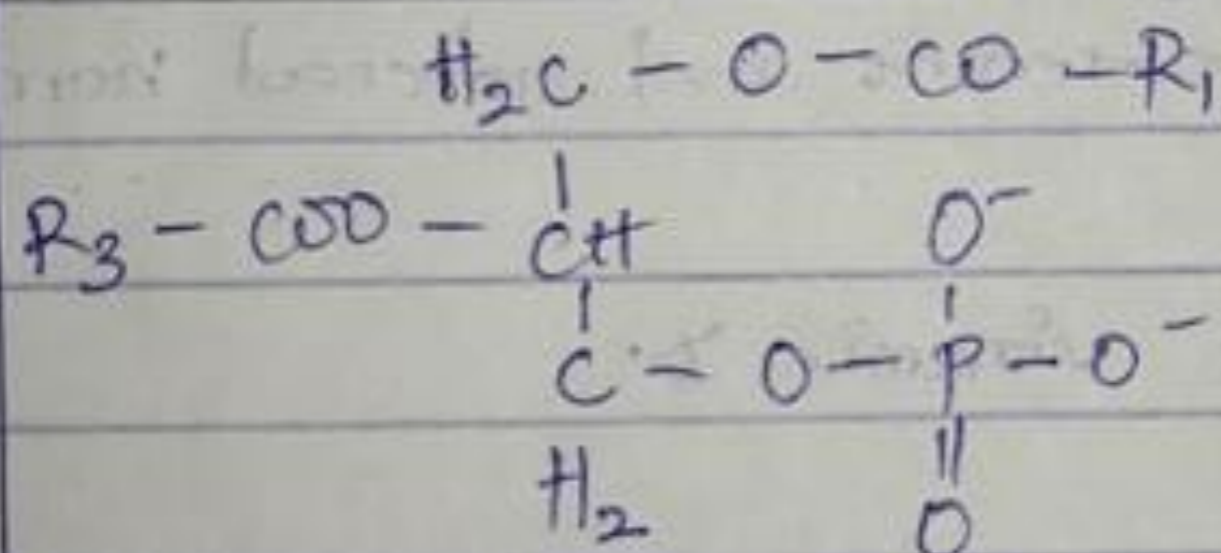 H₂C - O - CO - R₁
|
R₃ - COO - CH O⁻
| |
C - O - P - O⁻
||
H₂ O